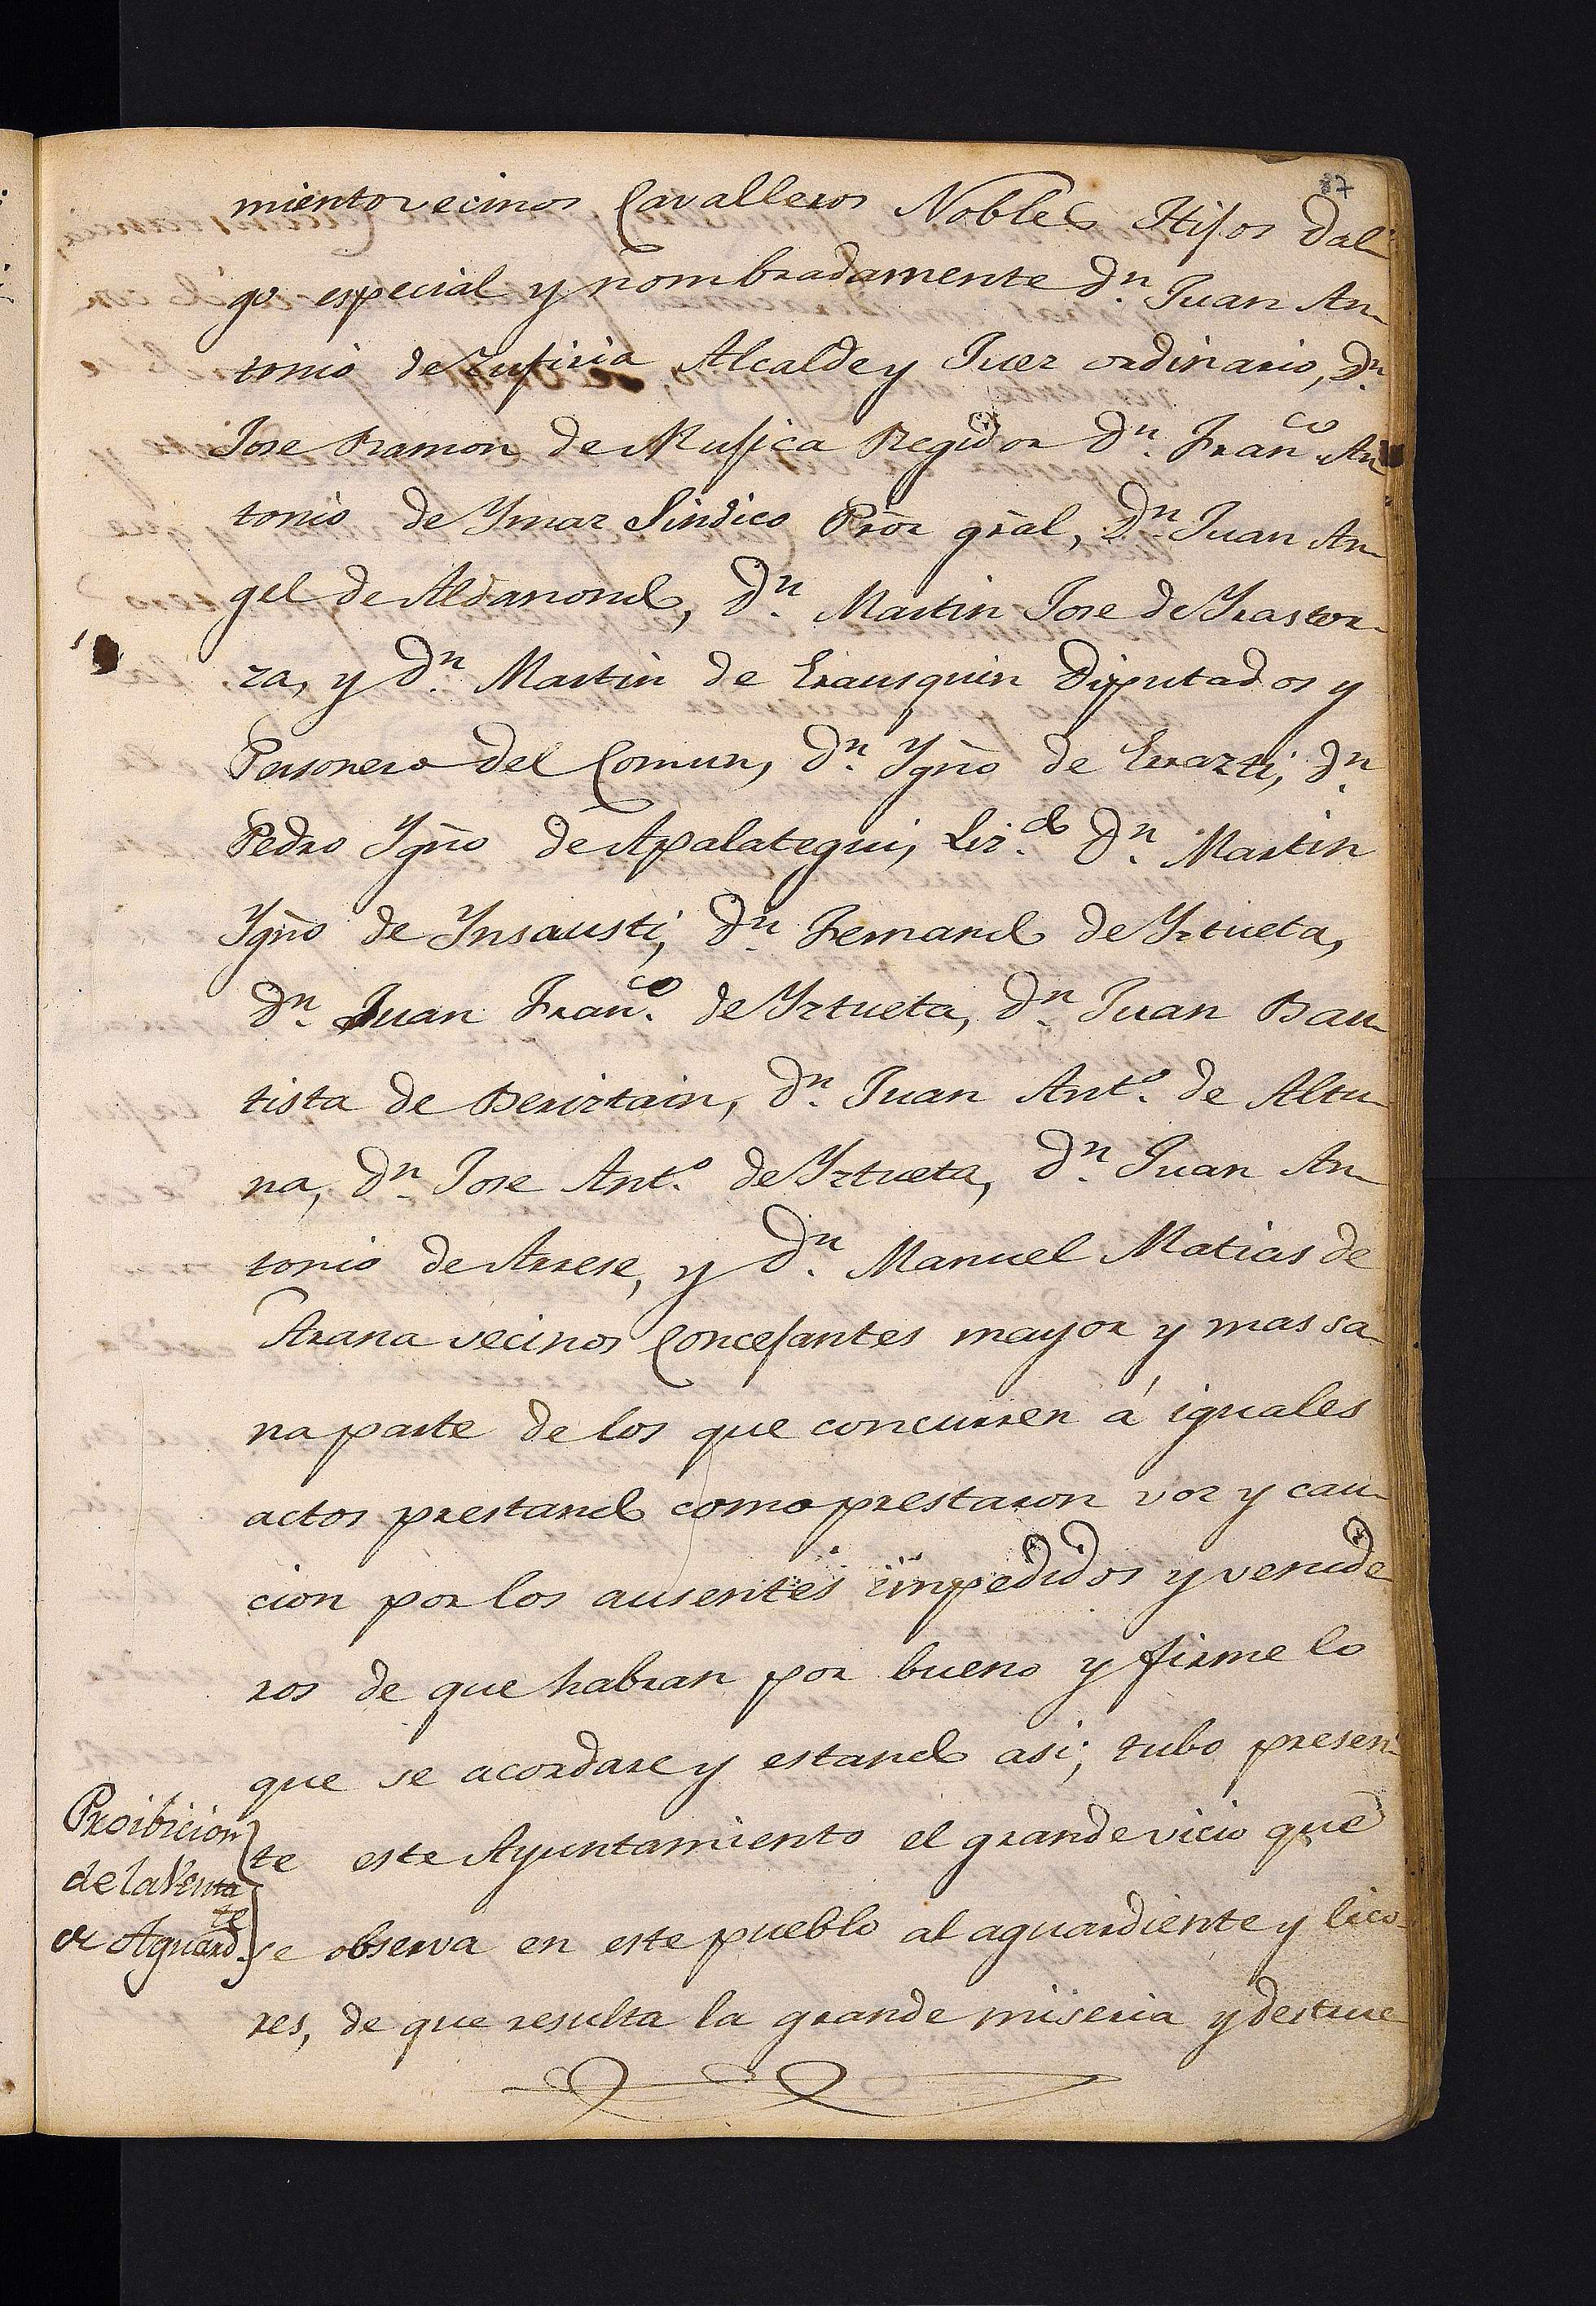 27
miento vecinos Cavalleros Nobles Hijos dal-
go especial y nombradamente Dn. Juan An-
tonio de Zufiria Alcalde y Juez ordinario, Dn.
Jose Ramon de Mujica Regidor Dn. Franco. An-
tonio de Ymaz Sindico Prõr grãl, Dn. Juan An-
gel de Aldanondo, Dn. Martin Jose de Yrastor-
za, y Dn. Martin de Erausquin Diputados y
Personero del Comun, Dn. Ygño de Erazti, Dn.
Pedro Ygño de Apalategui, Liz.do Dn. Martin
Ygño de Ynsausti, Dn. Fernando de Yztueta,
Dn. Juan Franco. de Yztueta, Dn. Juan Bau-
tista de Beriztain, Dn. Juan Anto. de Altu-
na, Dn. Jose Anto. de Yztueta, Dn. Juan An-
tonio de Arrese, y Dn. Manuel Matias de
Arana vecinos Concejantes mayor y mas sa-
na parte de los que concurren á iguales
actos prestando como prestaron voz y cau-
cion por los ausentes impedidos y venide-
ros de que habran por bueno y firme lo
que se acordare y estando asi; tubo presen-
Proibicion
de la Venta
de Aguardte.
te este Ayuntamiento el grande vicio que
se observa en este pueblo al aguardiente y lico-
res, de que resulta la grande miseria y destrue-